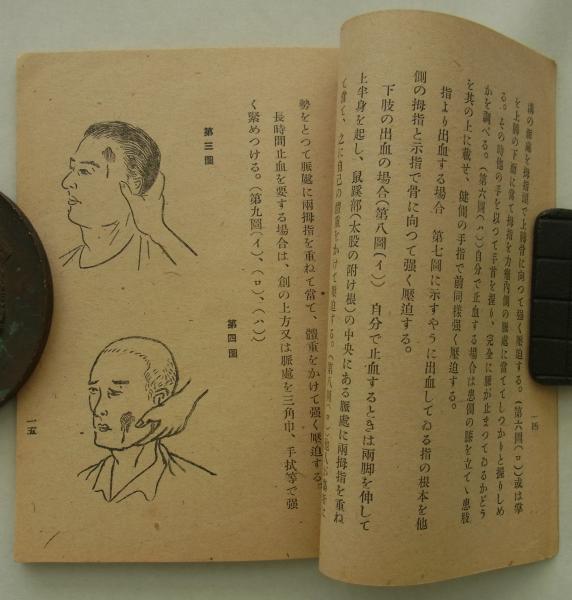 溝の脈處を拇指頭で上膊骨に向つて强く壓迫する。(第六圖(ロ)或は掌
を上膊の下顔に當て拇指を力瘤內側の脈處に當ててしつかりと握りしめ
る。その時他の手を以つて手首を握り、完全に脈が止まつてゐるかどう
かを調べる。(第六圖(ハ))自分で止血する場合は患側の膝を立て、患肢
を其の上に載せ、健側の手指で前同樣强く壓迫する。
指より出血する場合 第七圖に示すやうに出血してゐる指の根本を他
側の拇指と示指で骨に向つて强く壓迫する。
下肢の出血の場合(第八圖(イ)) 自分で止血するときは兩脚を伸して
上半身を起し、鼠蹊部(太股の附け根)の中央にある脈處に兩拇指を重ね
て當て、之に自己の體重をかけて壓迫する。(第八圖(ロ))
一四
勢をとつて脈處に兩拇指を重ねて當て、體重をかけて强く壓迫する。
長時間止血を要する場合は、創の上方又は脈處を三角巾、手拭等で强
く緊めつける。(第九圖(イ)、(ロ)、(ハ))
第三圖
第四圖
一五